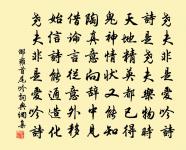 堯夫非是愛吟詩
詩是堯夫樂物時
天地精英都已得
鬼神情狀又能知
陶真意向辭中見
借論言從意外移
始信詩能通造化
堯夫非是愛吟詩
邵雍首尾吟詞典網集